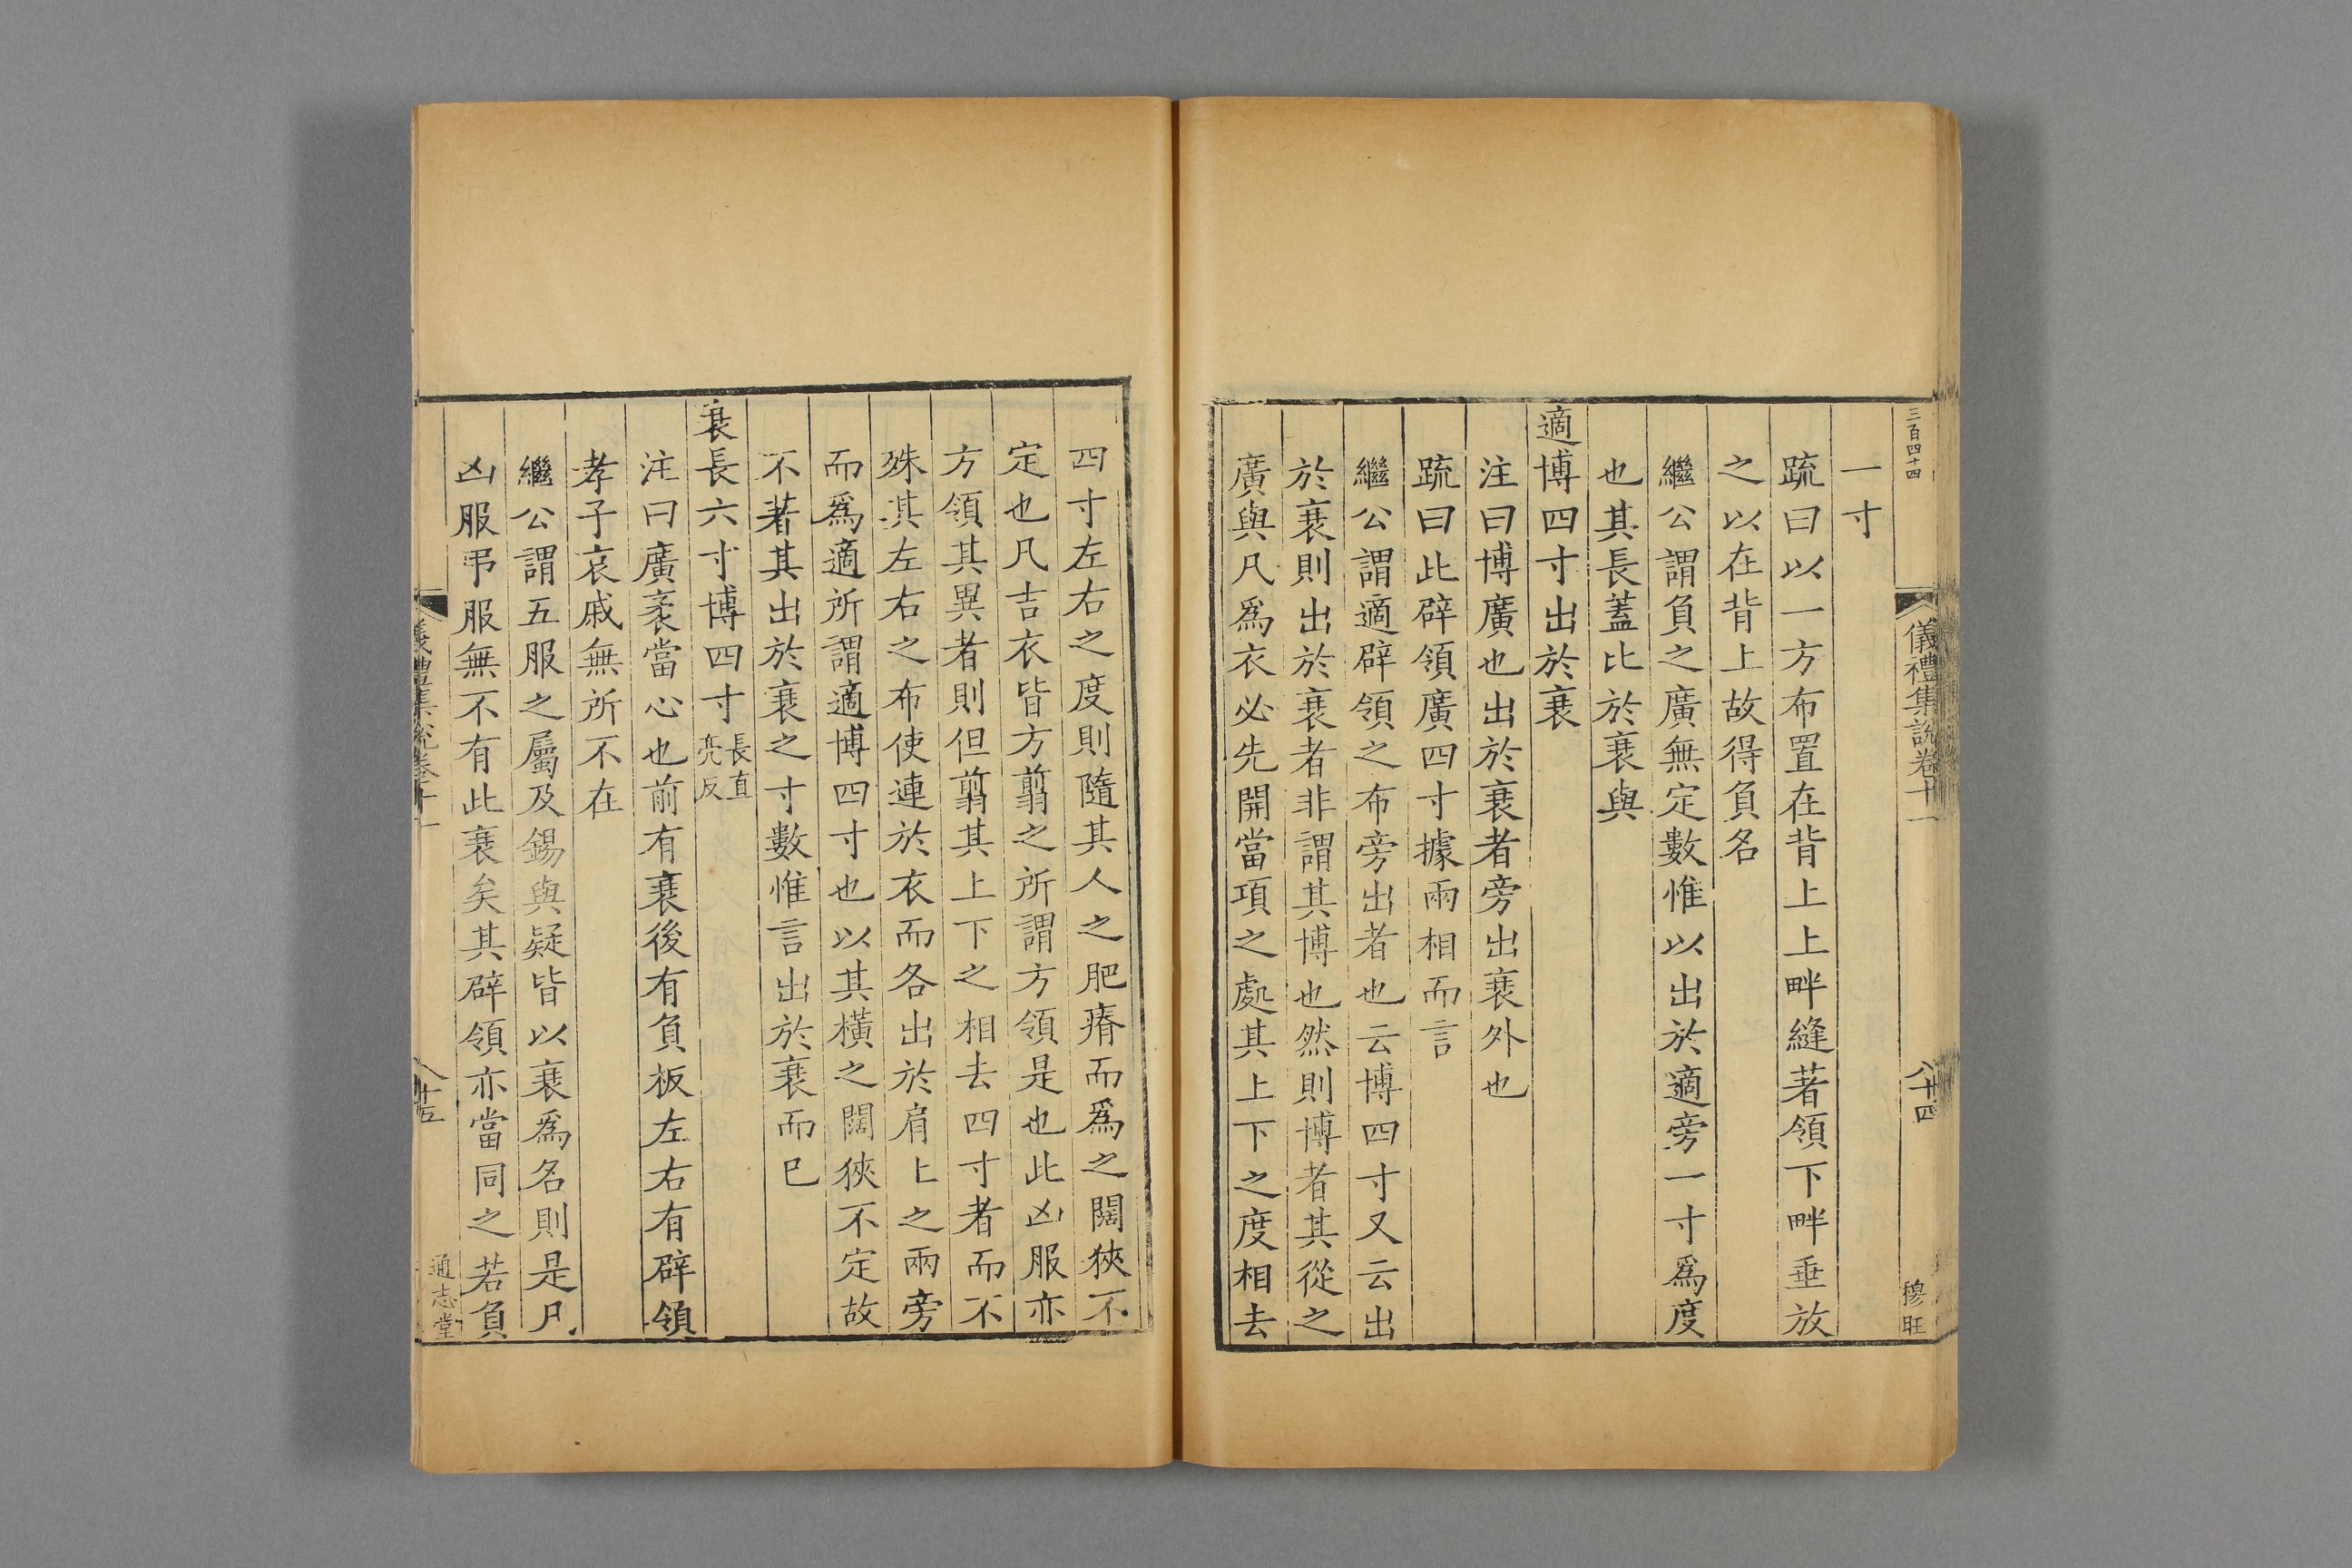 三百四十四
儀禮集說卷十一
八十四
穆旺
一寸
疏曰以一方布置在背上上畔縫著領下畔垂放
之以在背上故得負名
繼公謂負之廣無定數惟以出於適旁一寸爲度
也其長蓋比於衰與
適博四寸出於衰
注曰博廣也出於衰者旁出衰外也
疏曰此辟領廣四寸據兩相而言
繼公謂適辟領之布旁出者也云博四寸又云出
於衰則出於衰者非謂其博也然則博者其從之
廣與凡爲衣必先開當項之處其上下之度相去
四寸左右之度則隨其人之肥瘠而爲之闊狹不
定也凡吉衣皆方翦之所謂方領是也此凶服亦
方領其異者則但翦其上下之相去四寸者而不
殊其左右之布使連於衣而各出於肩上之兩旁
而爲適所謂適博四寸也以其橫之闊狹不定故
不著其出於衰之寸數惟言出於衰而已
衰長六寸博四寸長直亮反
注曰廣袤當心也前有衰後有負板左右有辟領
孝子哀戚無所不在
繼公謂五服之屬及錫與疑皆以衰爲名則是凡
凶服弔服無不有此衰矣其辟領亦當同之若負
儀禮集說卷十一
通志堂